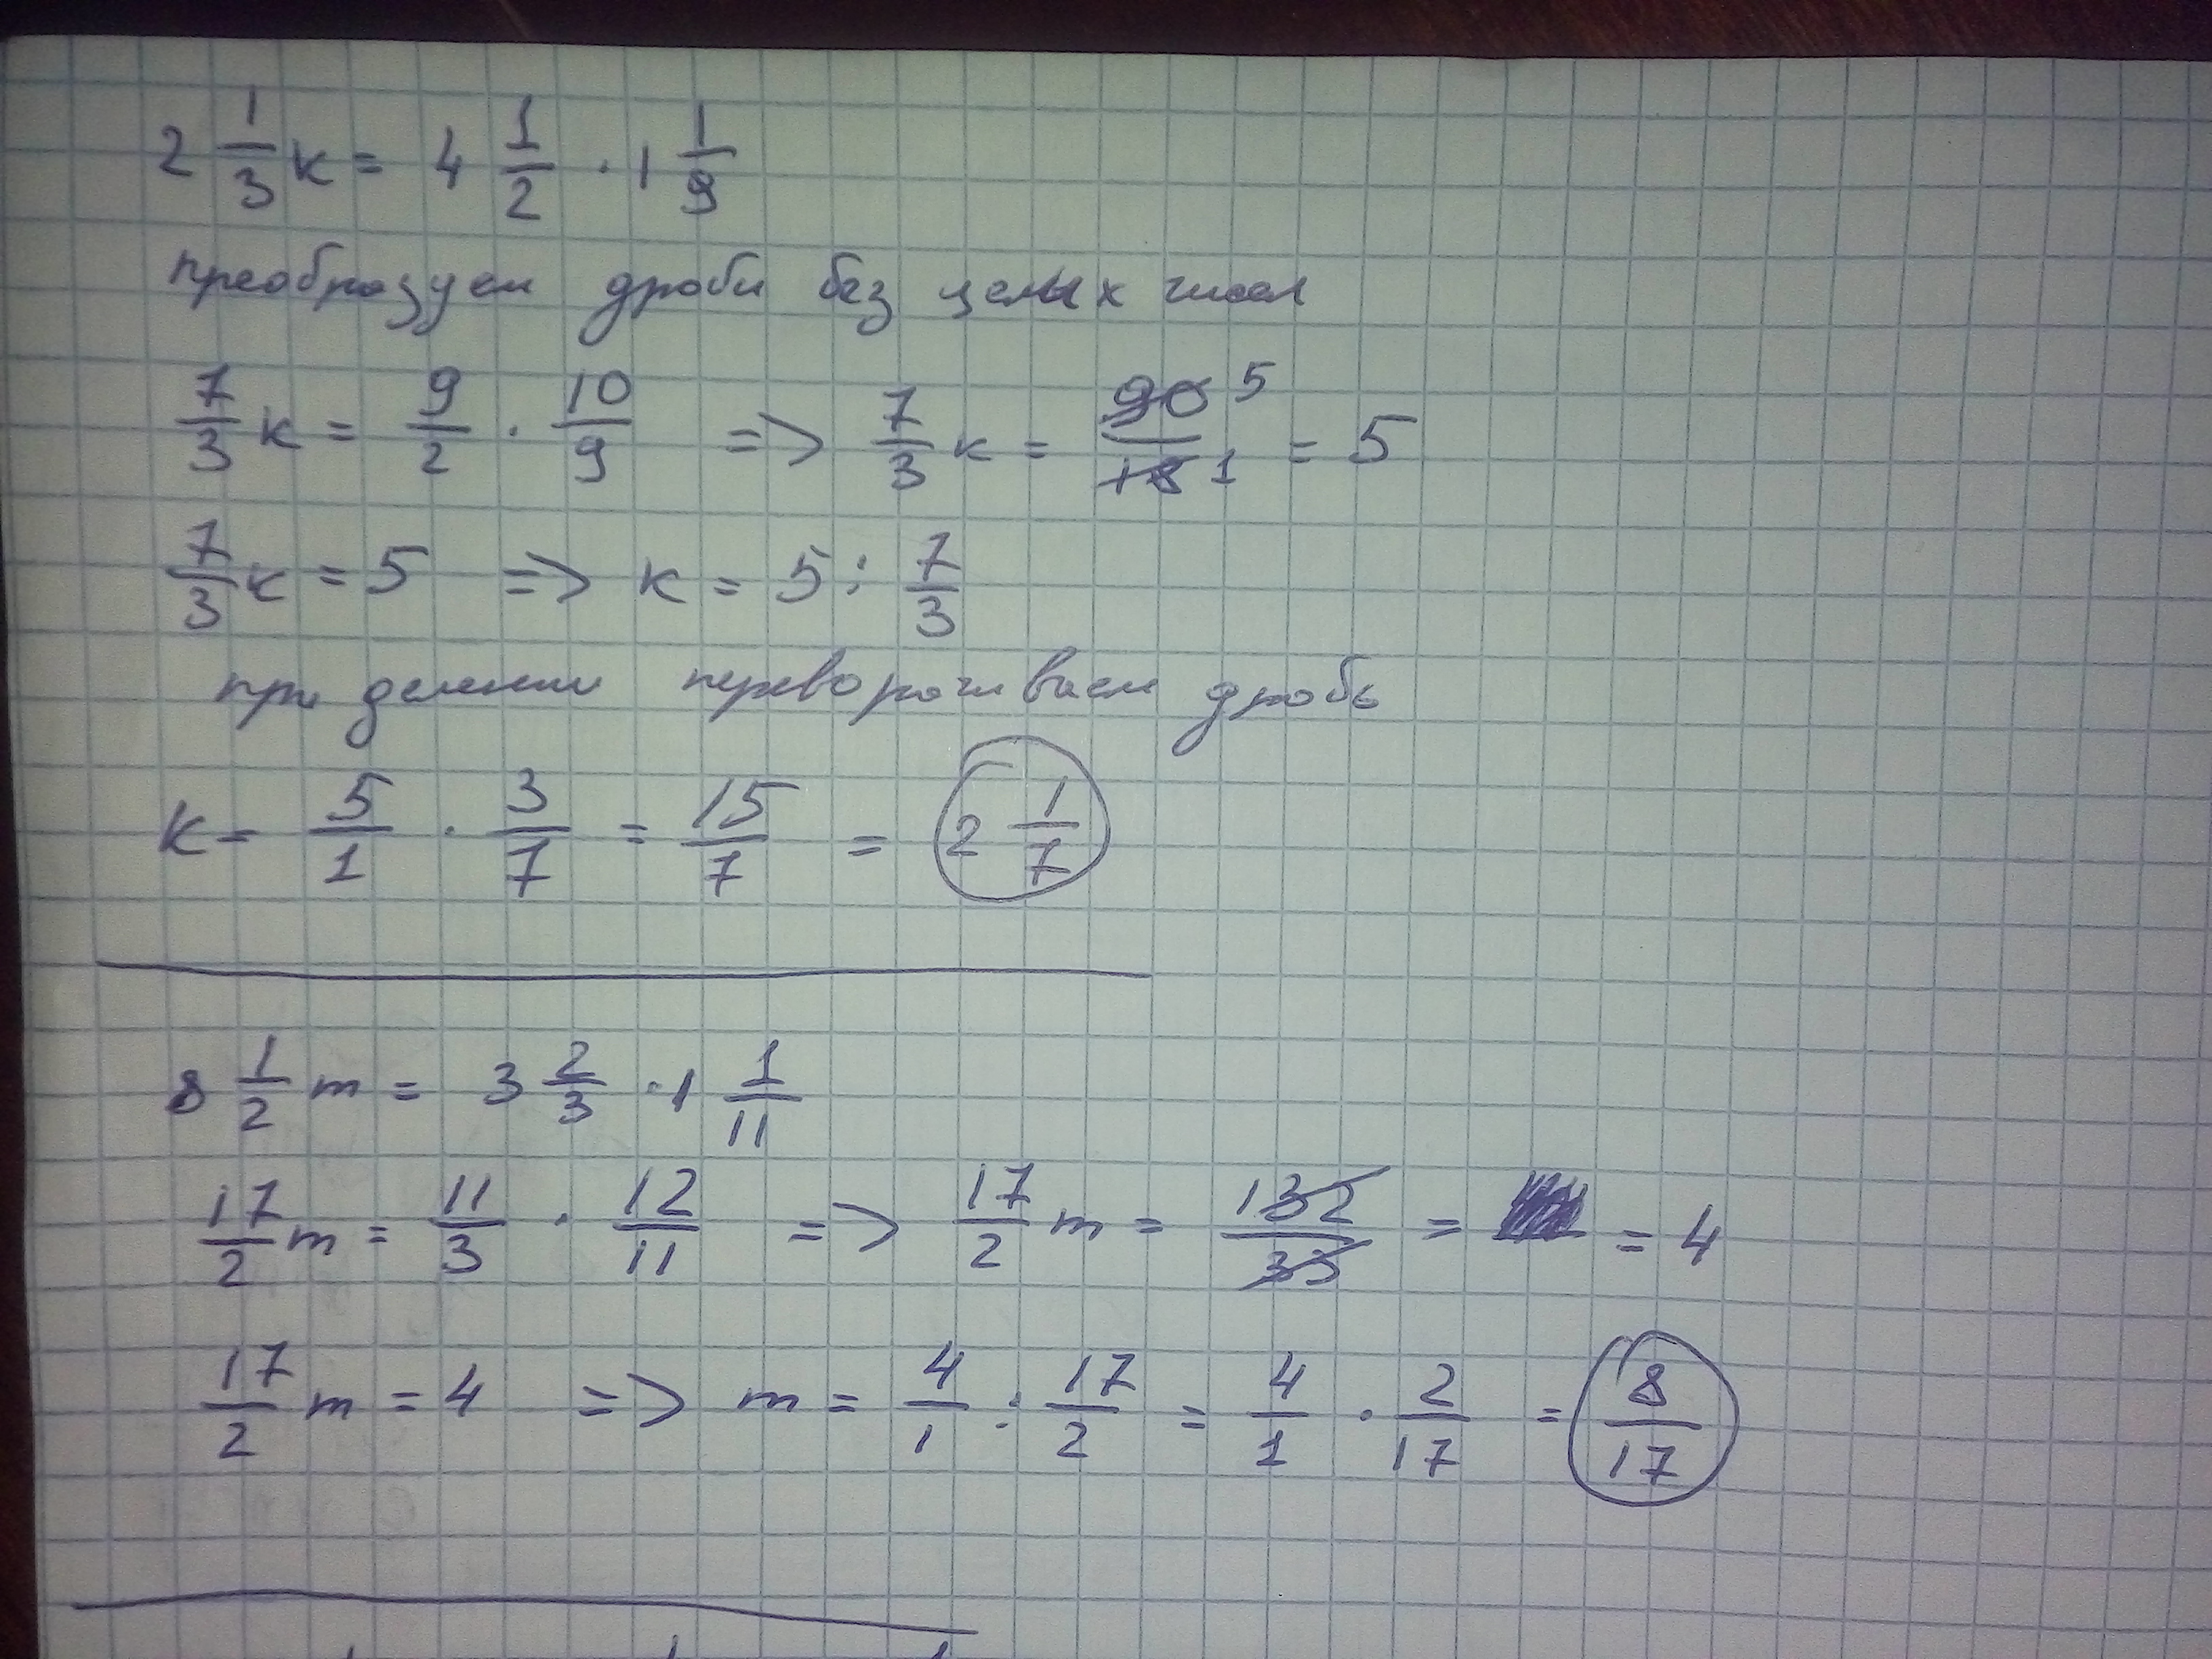 2 1/3 к = 4 1/2 · 1 1/9
преобразуем дроби без целых чисел
7/3 к = 9/2 · 10/9 => 7/3 к = 90/18 5/1 = 5
7/3 к = 5 => к = 5 : 7/3
при делении переворачиваем дробь
к = 5/1 · 3/7 = 15/7 = 2 1/7
8 1/2 m = 3 2/3 · 1 1/11
17/2 m = 11/3 · 12/11 => 17/2 m = 132/33 = = 4
17/2 m = 4 => m = 4/1 : 17/2 = 4/1 · 2/17 = 8/17